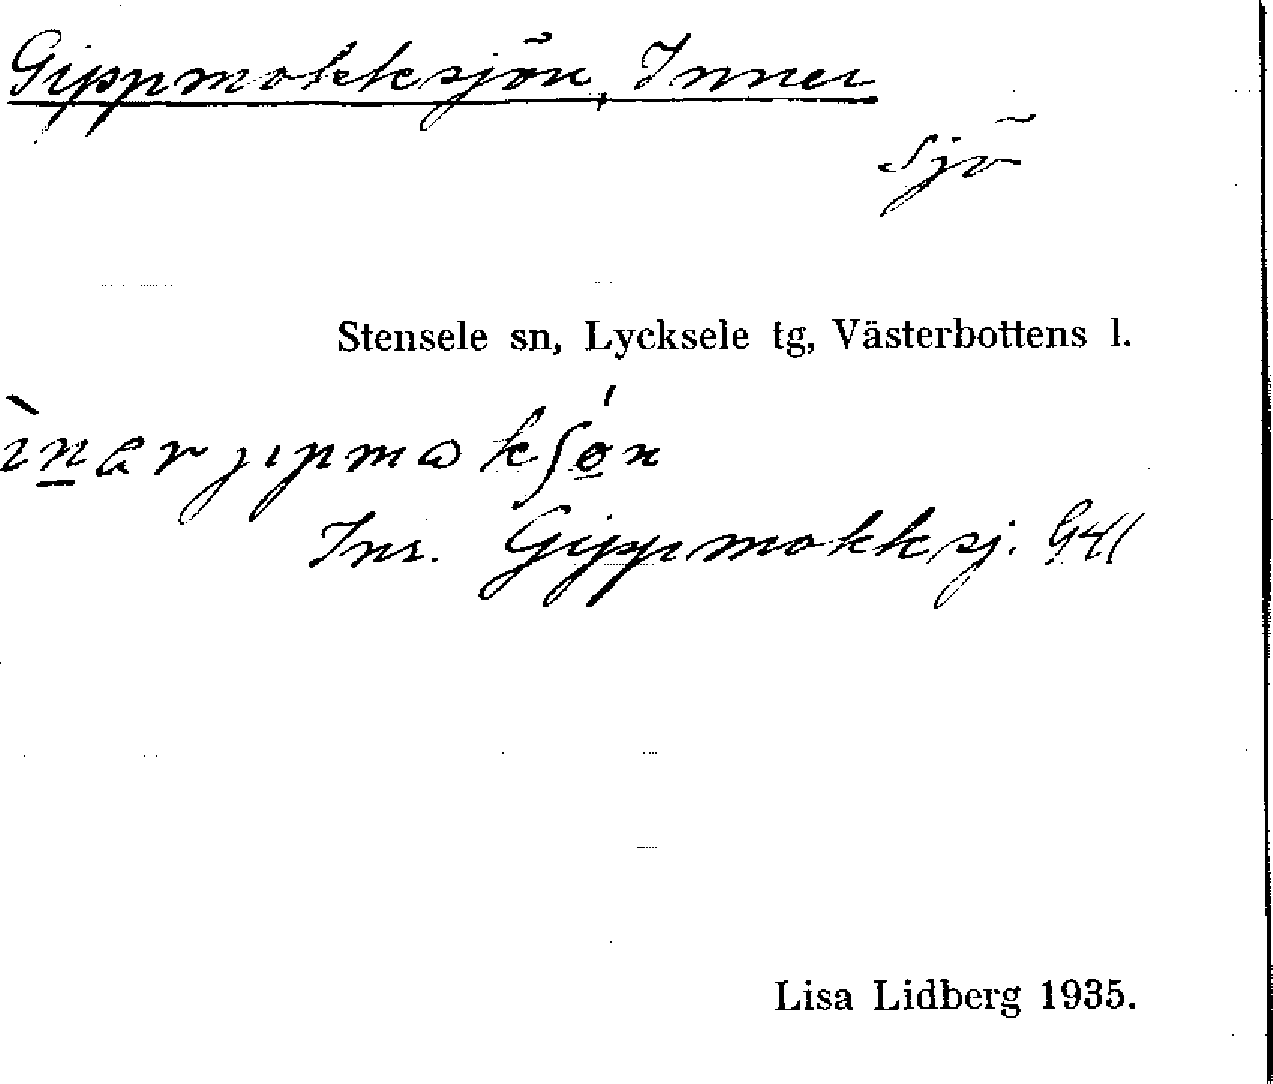 Gippmokksjön, Inner
sjö
Stensele sn, Lycksele tg, Västerbottens l.
Inr. Gippmokksj.
Lisa Lidberg 1935.